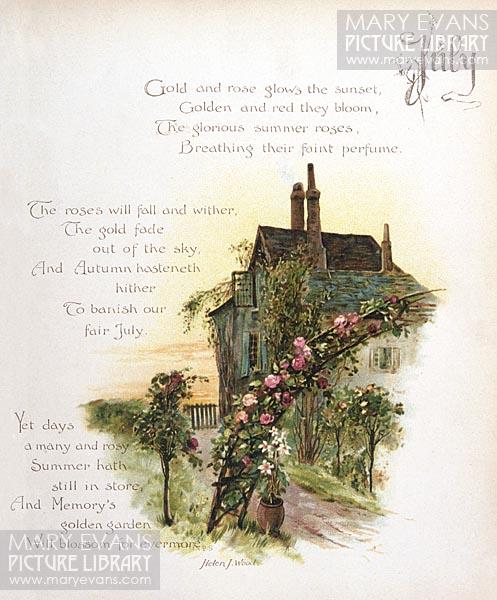 MARY EVANS
PICTURE LIBRARY
www.maryevans.com
July
Gold and rose glows the sunset,
Golden and red they bloom,
The glorious summer roses,
Breathing their faint perfume.
The roses will fall and wither,
The gold fade
out of the sky,
And Autumn hasteneth
hither
To banish our
fair July.
Yet days
a many and rosy
Summer hath
still in store,
And Memory's
golden garden
Will blossom for evermore.
Helen J. Wood
MARY EVANS
PICTURE LIBRARY
www.maryevans.com
MARY EVANS
PICTURE LIBRARY
www.maryevans.com